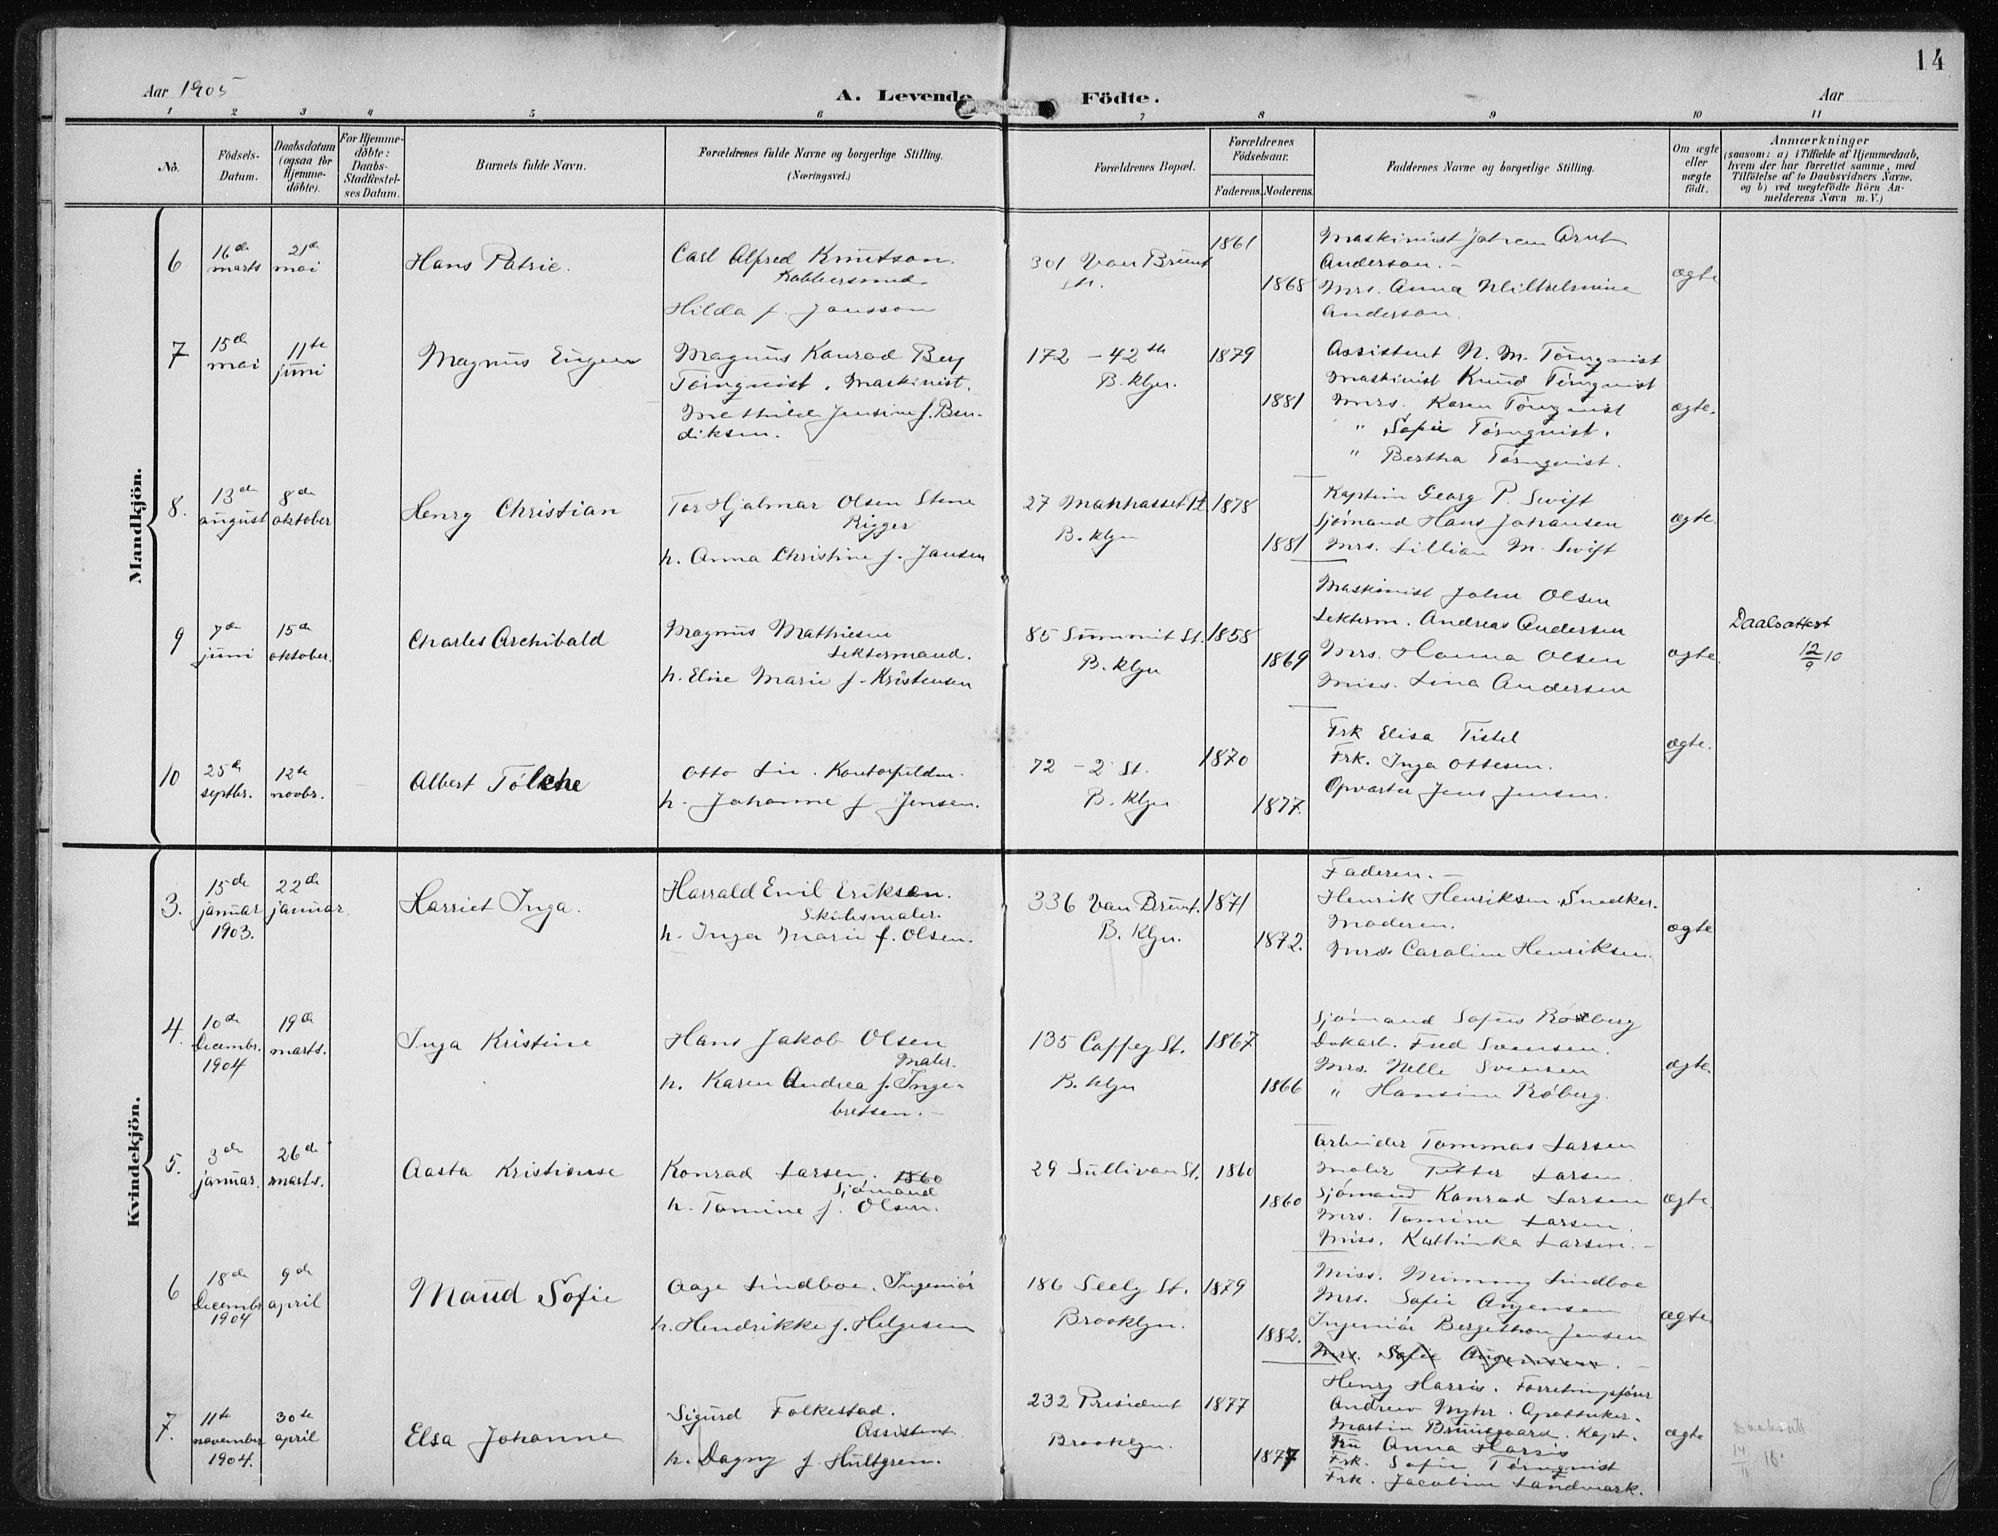 14
Aar 1905
A. Levende Födte.
Aar
1 2 3 4 5 6 7 8 9 10 11
No.
Födsels-Datum.
Daabsdatum (ogsaa for Hjemme-döbte).
For Hjemme-döbte: Daabs-Stadfæstel-ses Datum.
Barnets fulde Navn.
Forældrenes fulde Navne og borgerlige Stilling.
(Næringsvei.)
Forældrenes Bopæl.
Forældrenes Födselsaar.
Faderens. Moderens.
Faddernes Navne og borgerlige Stilling.
Om ægte eller uægte födt.
Anmærkninger
(saasom: a) i Tilfælde af Hjemmedaab,
hvem der har forrettet samme, med
Tilföielse af to Daabsvidners Navne,
og b) ved uægtefödte Börn An-
melderens Navn m. V.)
Mandkjön.
6
16de marts
21de mai
Hans Patrie.
Carl Alfred Knutson.
Kobbersmed.
Hilda f. Jansson
301 Van Brunt
St.
1861
1868
Maskinist Johan Arnt
Anderson. -
Mrs. Anna Wilhelmine
Anderson.
ægte
7
15de mai
11te juni
Magnus Eugen
Magnus Konrad Berg
Törnqvist. Maskinist.
Mathilde Jensine f. Ben-
diksen.
172 - 42th
B.klyn.
1879
1881
Assistent N. M. Törnqvist
Maskinist Knud Törnqvist
Mrs. Karen Törnqvist
" Sofie Törnqvist.
" Bertha Törnqvist.
ægte.
8.
13de august
8de oktober
Henry Christian
Tor Hjalmar Olsen Stene
Rigger
h. Anna Christine f. Jansen
27 Manhasset Pl.
B.klyn
1878
1881
Kaptein Georg P. Swift
Sjömand Hans Johansen
Mrs. Lillian M. Swift
ægte.
9
7de juni
15de oktober.
Charles Archibald
Magnus Mathiesen
Lektermand.
h. Elise Marie f. Kristensen
85 Summit St.
B.klyn
1858
1869
Maskinist John Olsen
Lekterm. Andreas Andersen
Mrs. Hanna Olsen
Miss. Lina Andersen
ægte.
Daabsattest
12/9 10
10
25de septbr.
12te novbr.
Albert Tölche
Otto Lie. Kontorfuldm.
h. Johanne f. Jensen.
72 - 2 St.
B.klyn
1870
1877.
Frk Elisa Tistel
Frk. Inga Ottesen.
Opvarter Jens Jensen.
ægte.
Kvindekjön.
3.
15de januar 1903.
22de januar
Harriet Inga.
Harrald Emil Eriksen.
Skiltsmaler.
h. Inga Marie f. Olsen.
336 Van Brunt.
B.Klyn.
1871
1872.
Faderen. -
Henrik Henriksen. Snedker.
Moderen.
Mrs Caroline Henriksen.
ægte
4.
10de Decembr. 1904
19de marts.
Inga Kristine
Hans Jakob Olsen
Maler.
h. Karen Andrea f. Inge-
bretsen. -
135 Coffey St.
B.klyn
1867
1866
Sjömand Sofus Röberg
Dokarb. Fred Svensen.
Mrs. Nelle Svensen
" Hansine Röberg.
ægte.
5.
3de januar.
26de marts.
Aasta Kristianse
Konrad Larsen. 1860
Sjömand
h. Tomine f. Olsen.
29 Sullivan St.
1860
1860
Arbeider Tommas Larsen
Maler Petter Larsen.
Sjömand Konrad Larsen
Mrs. Tomine Larsen.
Miss. Kathinka Larsen. -
ægte.
6
18de Decembr 1904
9de april
Maud Sofie
Aage Lindboe. Ingeniör
h. Hendrikke f. Helgesen
186 Seely St.
Brooklyn.
1879
1882.
Miss. Mimmy Lindboe
Mrs. Sofie Angensen
Ingeniör Bergethon Jensen
Mrs. Sofie Angensen. -
ægte.
7.
11te november 1904.
30te april
Elsa Johanne
Sigurd Folkestad.
Assistent.
h. Dagny f. Hultgren.
232 President
Brooklyn.
1877
1877
Henry Harris. Forretningsförer
Andrew Myhr. Apotheker.
Martin Bruusgaard. Kapt.
Fru Anna Harris
Frk. Sofie Törnqvist
Frk. Jacobine Landmark.
ægte
Daabsatt
14/11 18.